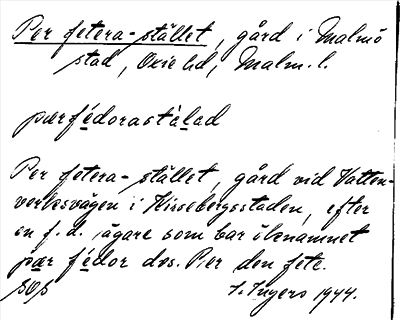 Per fetera-stället, gård i Malmö
stad, Oxie hd, Malm. l.
pærfédorastälad
Per fetera-stället, gård vid Vatten-
verksvägen i Kirsebergsstaden, efter
en f.d. ägare som bar öknamnet
pær fédor dvs. Per den fete.
I. Ingers 1944.